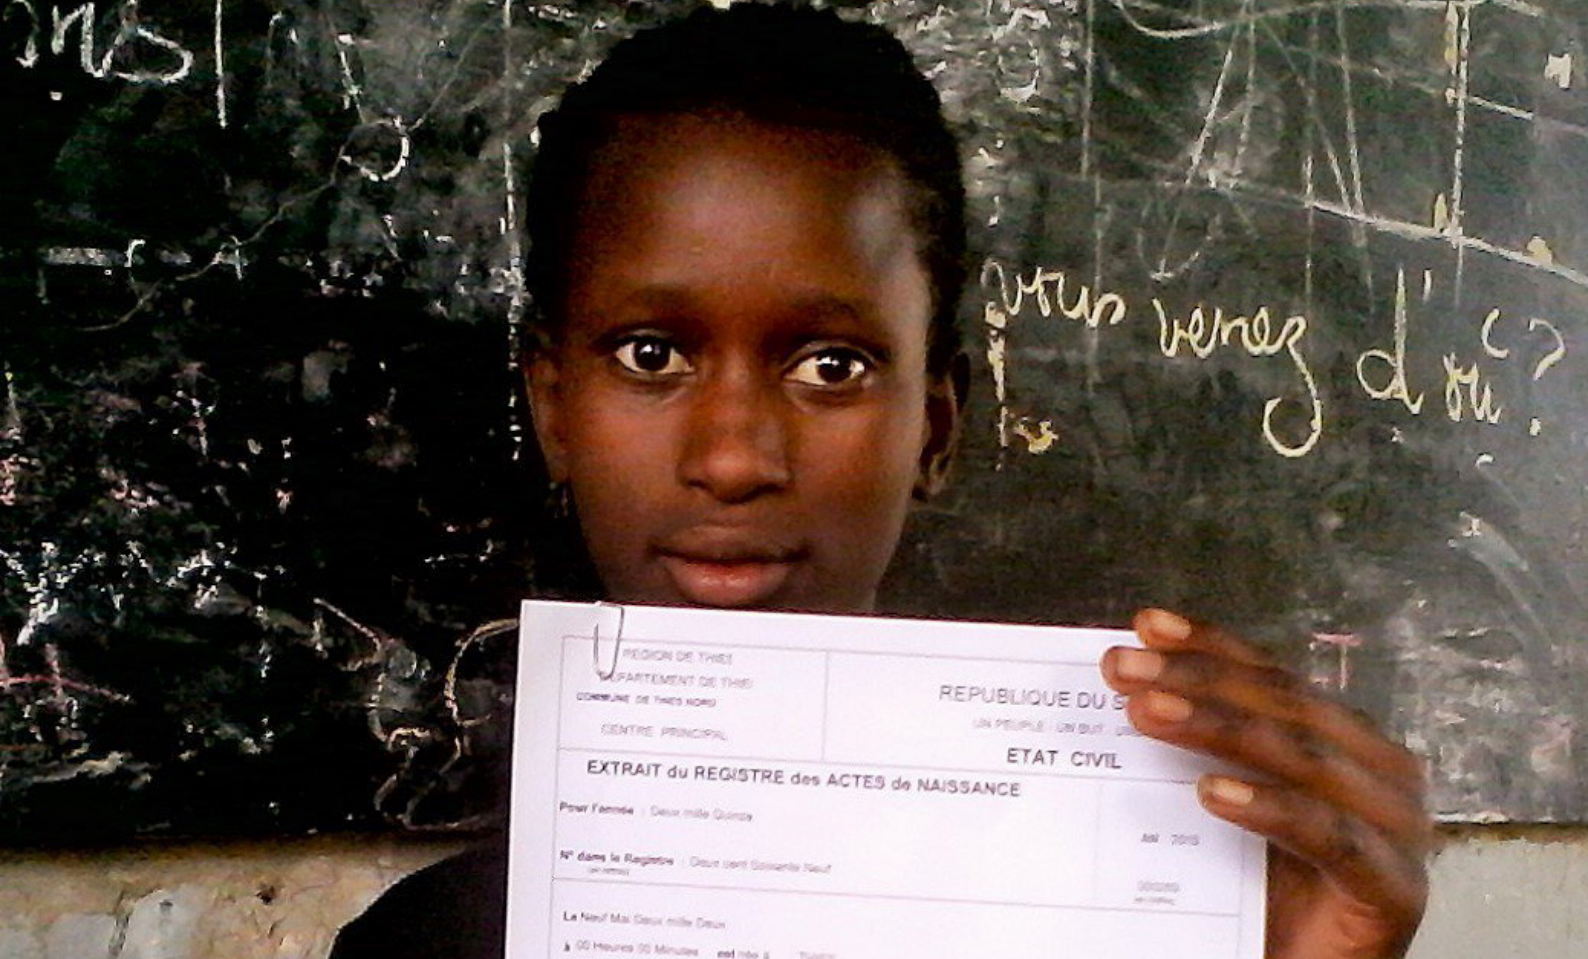 ons
vous venez d'où ?
REGION DE THIES
DEPARTEMENT DE THIES
COMMUNE DE THIES NORD
CENTRE PRINCIPAL
REPUBLIQUE DU S
UN PEUPLE - UN BUT - UN
ETAT CIVIL
EXTRAIT du REGISTRE des ACTES de NAISSANCE
Pour l'année : Deux mille Quinze
AN 2015
N° dans le Registre : Deux cent Soixante Neuf
000269
Le Neuf Mai Deux mille Deux
à 00 Heures 00 Minutes est née à